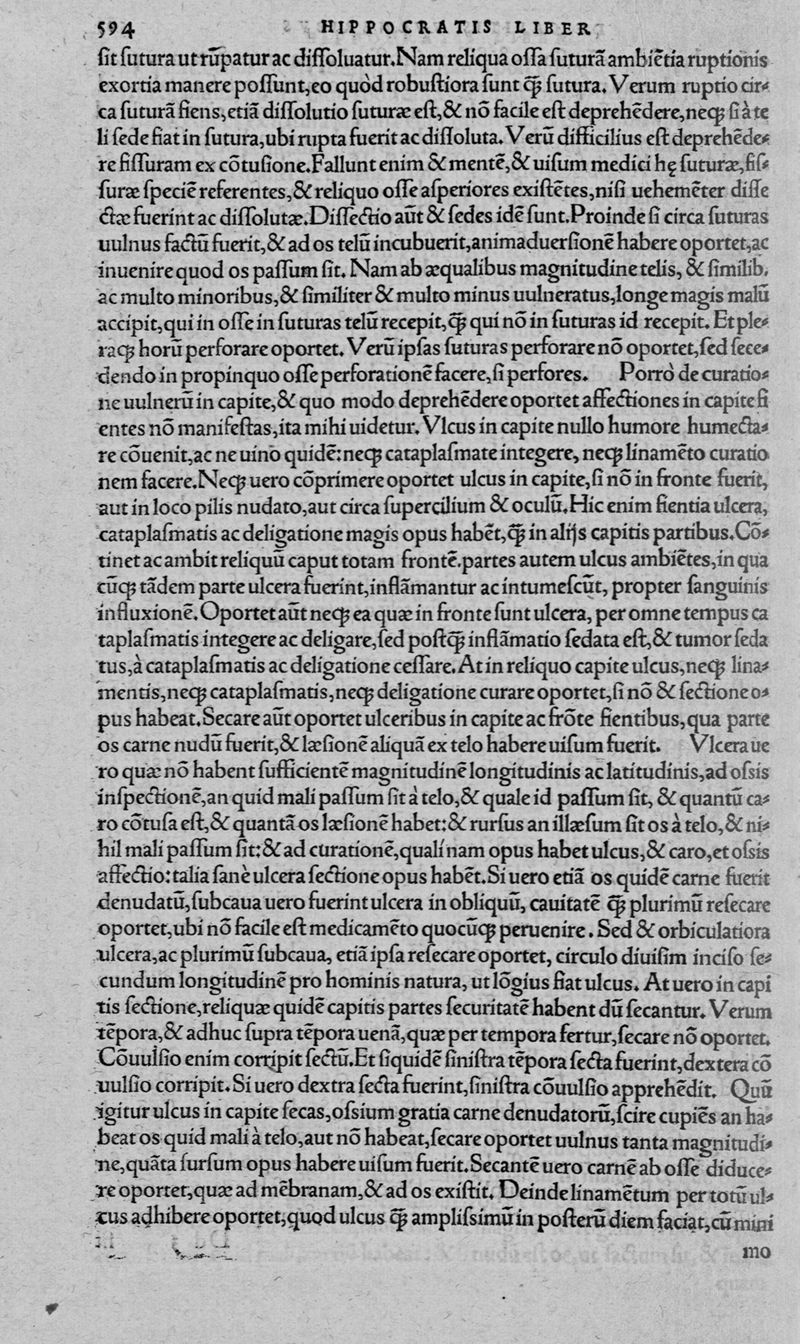 594 HIPPOCRATIS LIBER
ſit ſutura ut rũpatur ac diſſoluatur. Nam reliqua oſſa ſuturã ambiẽtia ruptionis
exortia manere poſſunt, eo quòd robuſtiora ſunt ꝙ̃ ſutura. Verum ruptio cir⸗
ca ſuturã fiens, etiã diſſolutio ſuturæ eſt, & nõ facile eſt deprehẽdere, neqꝫ ſi à te
li ſede fiat in ſutura, ubi rupta fuerit ac diſſoluta. Verũ difficilius eſt deprehẽde⸗
re fiſſuram ex cõtuſione. Fallunt enim & mentẽ, & uiſum medici hę ſuturæ, fiſ⸗
ſuræ ſpeciẽ referentes, & reliquo oſſe aſperiores exiſtẽtes, niſi uehemẽter diſſe
ctæ fuerint ac diſſolutæ. Diſſectio aũt & ſedes idẽ ſunt. Proinde ſi circa ſuturas
uulnus factũ fuerit, & ad os telũ incubuerit, animaduerſionẽ habere oportet, ac
inuenire quod os paſſum ſit. Nam ab æqualibus magnitudine telis, & ſimilib.
ac multo minoribus, & ſimiliter & multo minus uulneratus, longe magis malũ
accipit, qui in oſſe in ſuturas telũ recepit, ꝙ̃ qui nõ in ſuturas id recepit. Et ple⸗
raqꝫ horũ perforare oportet. Verũ ipſas ſuturas perforare nõ oportet, ſed ſece⸗
dendo in propinquo oſſe perforationẽ facere, ſi perfores. Porrò de curatio⸗
ne uulnerũ in capite, & quo modo deprehẽdere oportet affectiones in capite fi
entes nõ manifeſtas, ita mihi uidetur. Vlcus in capite nullo humore humecta⸗
re cõuenit, ac ne uino quidẽ: neqꝫ cataplaſmate integere, neqꝫ linamẽto curatio
nem facere. Neqꝫ uero cõprimere oportet ulcus in capite, ſi nõ in fronte fuerit,
aut in loco pilis nudato, aut circa ſupercilium & oculũ. Hic enim fientia ulcera,
cataplaſmatis ac deligatione magis opus habẽt, ꝙ̃ in alijs capitis partibus. Cõ⸗
tinet ac ambit reliquũ caput totam frontẽ. partes autem ulcus ambiẽtes, in qua
cũqꝫ tãdem parte ulcera fuerint, inflãmantur ac intumeſcũt, propter ſanguinis
influxionẽ. Oportet aũt neqꝫ ea quæ in fronte ſunt ulcera, per omne tempus ca
taplaſmatis integere ac deligare, ſed poſtꝙ̃ inflãmatio ſedata eſt, & tumor ſeda
tus, à cataplaſmatis ac deligatione ceſſare. At in reliquo capite ulcus, neqꝫ lina⸗
mentis, neqꝫ cataplaſmatis, neqꝫ deligatione curare oportet, ſi nõ & ſectione o⸗
pus habeat. Secare aũt oportet ulceribus in capite ac frõte fientibus, qua parte
os carne nudũ fuerit, & læſionẽ aliquã ex telo habere uiſum fuerit. Vlcera ue
ro quæ nõ habent ſufficientẽ magnitudinẽ longitudinis ac latitudinis, ad oſsis
inſpectionẽ, an quid mali paſſum ſit à telo, & quale id paſſum ſit, & quantũ ca⸗
ro cõtuſa eſt, & quantã os læſionẽ habet: & rurſus an illæſum ſit os à telo, & ni⸗
hil mali paſſum ſit: & ad curationẽ, quali nam opus habet ulcus, & caro, et oſsis
affectio: talia ſanè ulcera ſectione opus habẽt. Si uero etiã os quidẽ carne fuerit
denudatũ, ſubcaua uero fuerint ulcera in obliquũ, cauitatẽ ꝙ̃ plurimũ reſecare
oportet, ubi nõ facile eſt medicamẽto quocũqꝫ peruenire. Sed & orbiculatiora
ulcera, ac plurimũ ſubcaua, etiã ipſa reſecare oportet, circulo diuiſim inciſo ſe⸗
cundum longitudinẽ pro hominis natura, ut lõgius fiat ulcus. At uero in capi
tis ſectione, reliquæ quidẽ capitis partes ſecuritatẽ habent dũ ſecantur. Verum
tẽpora, & adhuc ſupra tẽpora uenã, quæ per tempora fertur, ſecare nõ oportet.
Cõuulſio enim corripit ſectũ. Et ſiquidẽ ſiniſtra tẽpora ſecta fuerint, dextera cõ
uulſio corripit. Si uero dextra ſecta fuerint, ſiniſtra cõuulſio apprehẽdit. Quũ
igitur ulcus in capite ſecas, oſsium gratia carne denudatorũ, ſcire cupiẽs an ha⸗
beat os quid mali à telo, aut nõ habeat, ſecare oportet uulnus tanta magnitudi⸗
ne, quãta ſurſum opus habere uiſum fuerit. Secantẽ uero carnẽ ab oſſe diduce⸗
re oportet, quæ ad mẽbranam, & ad os exiſtit. Deinde linamẽtum per totũ ul⸗
cus adhibere oportet, quod ulcus ꝙ̃ ampliſsimũ in poſterũ diem faciat, cũ mini
mo